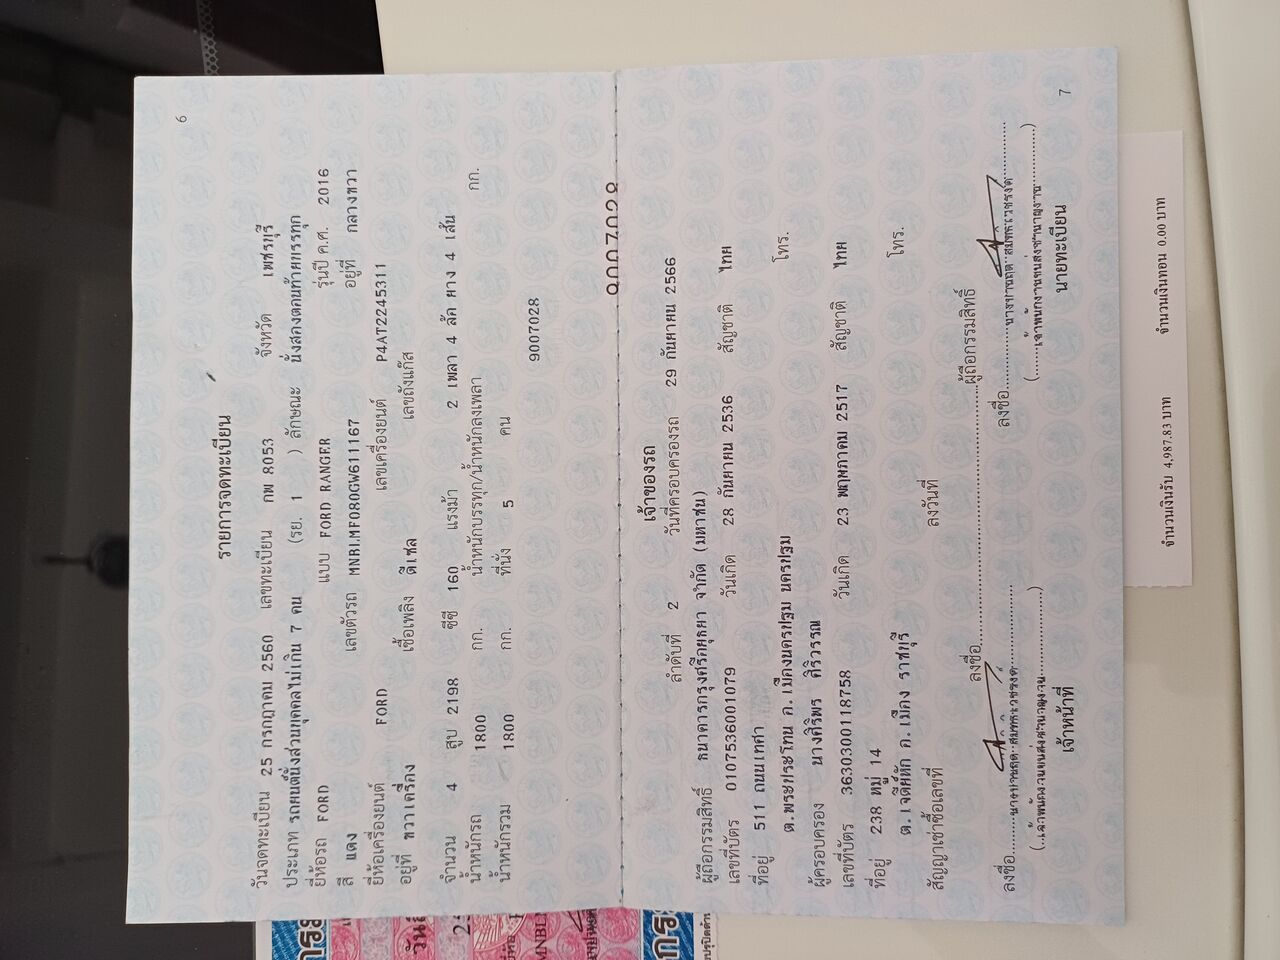 6
รายการจดทะเบียน
วันจดทะเบียน 25 กรกฎาคม 2560 เลขทะเบียน กพ 8053 จังหวัด เพชรบุรี
ประเภท รถยนต์นั่งส่วนบุคคลไม่เกิน 7 คน (รย. 1 ) ลักษณะ นั่งสองตอนท้ายบรรทุก
ยี่ห้อรถ FORD แบบ FORD RANGER รุ่นปี ค.ศ. 2016
สี แดง เลขตัวรถ MNBLMF080GW611167 อยู่ที่ กลางขวา
ยี่ห้อเครื่องยนต์ FORD เลขเครื่องยนต์ P4AT2245311
อยู่ที่ ขวาเครื่อง เชื้อเพลิง ดีเซล เลขถังแก๊ส
จำนวน 4 สูบ 2198 ซีซี 160 แรงม้า 2 เพลา 4 ล้อ ยาง 4 เส้น
น้ำหนักรถ 1800 กก. น้ำหนักบรรทุก/น้ำหนักลงเพลา กก.
น้ำหนักรวม 1800 กก. ที่นั่ง 5 คน
9007028
9007028
เจ้าของรถ
ลำดับที่ 2 วันที่ครอบครองรถ 29 กันยายน 2566
ผู้ถือกรรมสิทธิ์ ธนาคารกรุงศรีอยุธยา จำกัด (มหาชน)
เลขที่บัตร 0107536001079 วันเกิด 28 กันยายน 2536 สัญชาติ ไทย
ที่อยู่ 511 ถนนเทศา โทร.
ต.พระประโทน อ.เมืองนครปฐม นครปฐม
ผู้ครอบครอง นางศิริพร ศิริวรรณ
เลขที่บัตร 3630300118758 วันเกิด 23 พฤษภาคม 2517 สัญชาติ ไทย
ที่อยู่ 238 หมู่ 14 โทร.
ต.เจดีย์หัก อ.เมือง ราชบุรี
สัญญาเช่าซื้อเลขที่ ลงวันที่
ลงชื่อ ผู้ถือกรรมสิทธิ์
ลงชื่อ ลงชื่อ
เจ้าหน้าที่ นายทะเบียน
7
จำนวนเงินรับ 4,987.83 บาท จำนวนเงินทอน 0.00 บาท